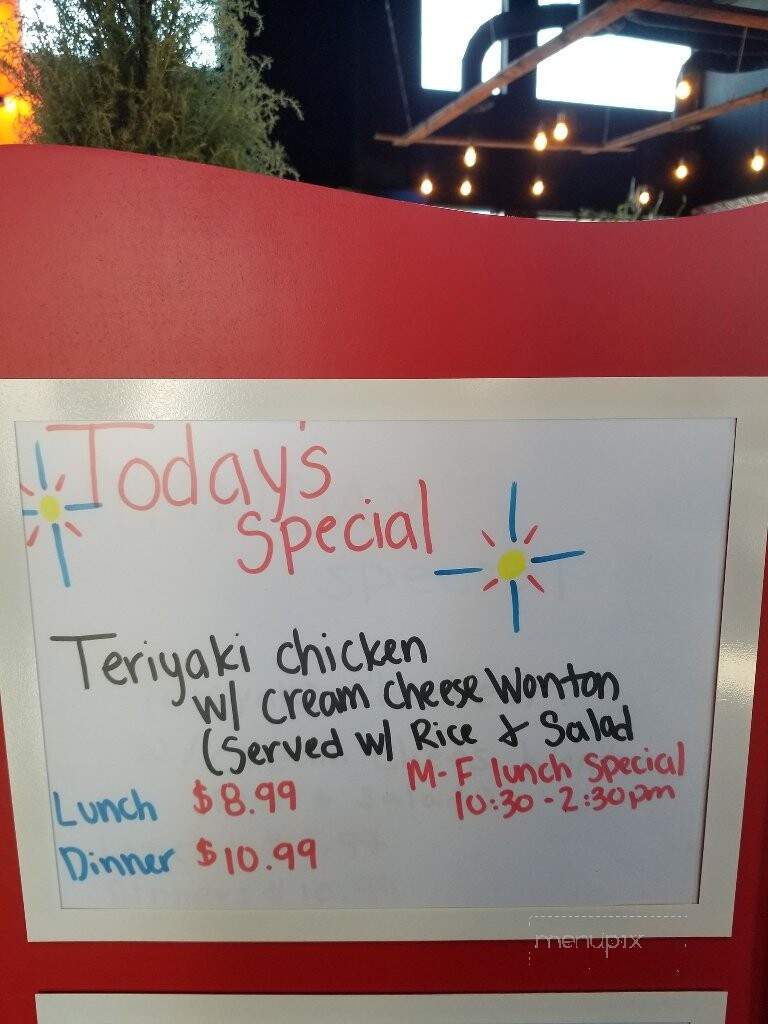 Today's
Special
Teriyaki chicken
w/ cream cheese Wonton
(Served w/ Rice & Salad
M-F lunch special
10:30 - 2:30pm
Lunch $8.99
Dinner $10.99
menupix